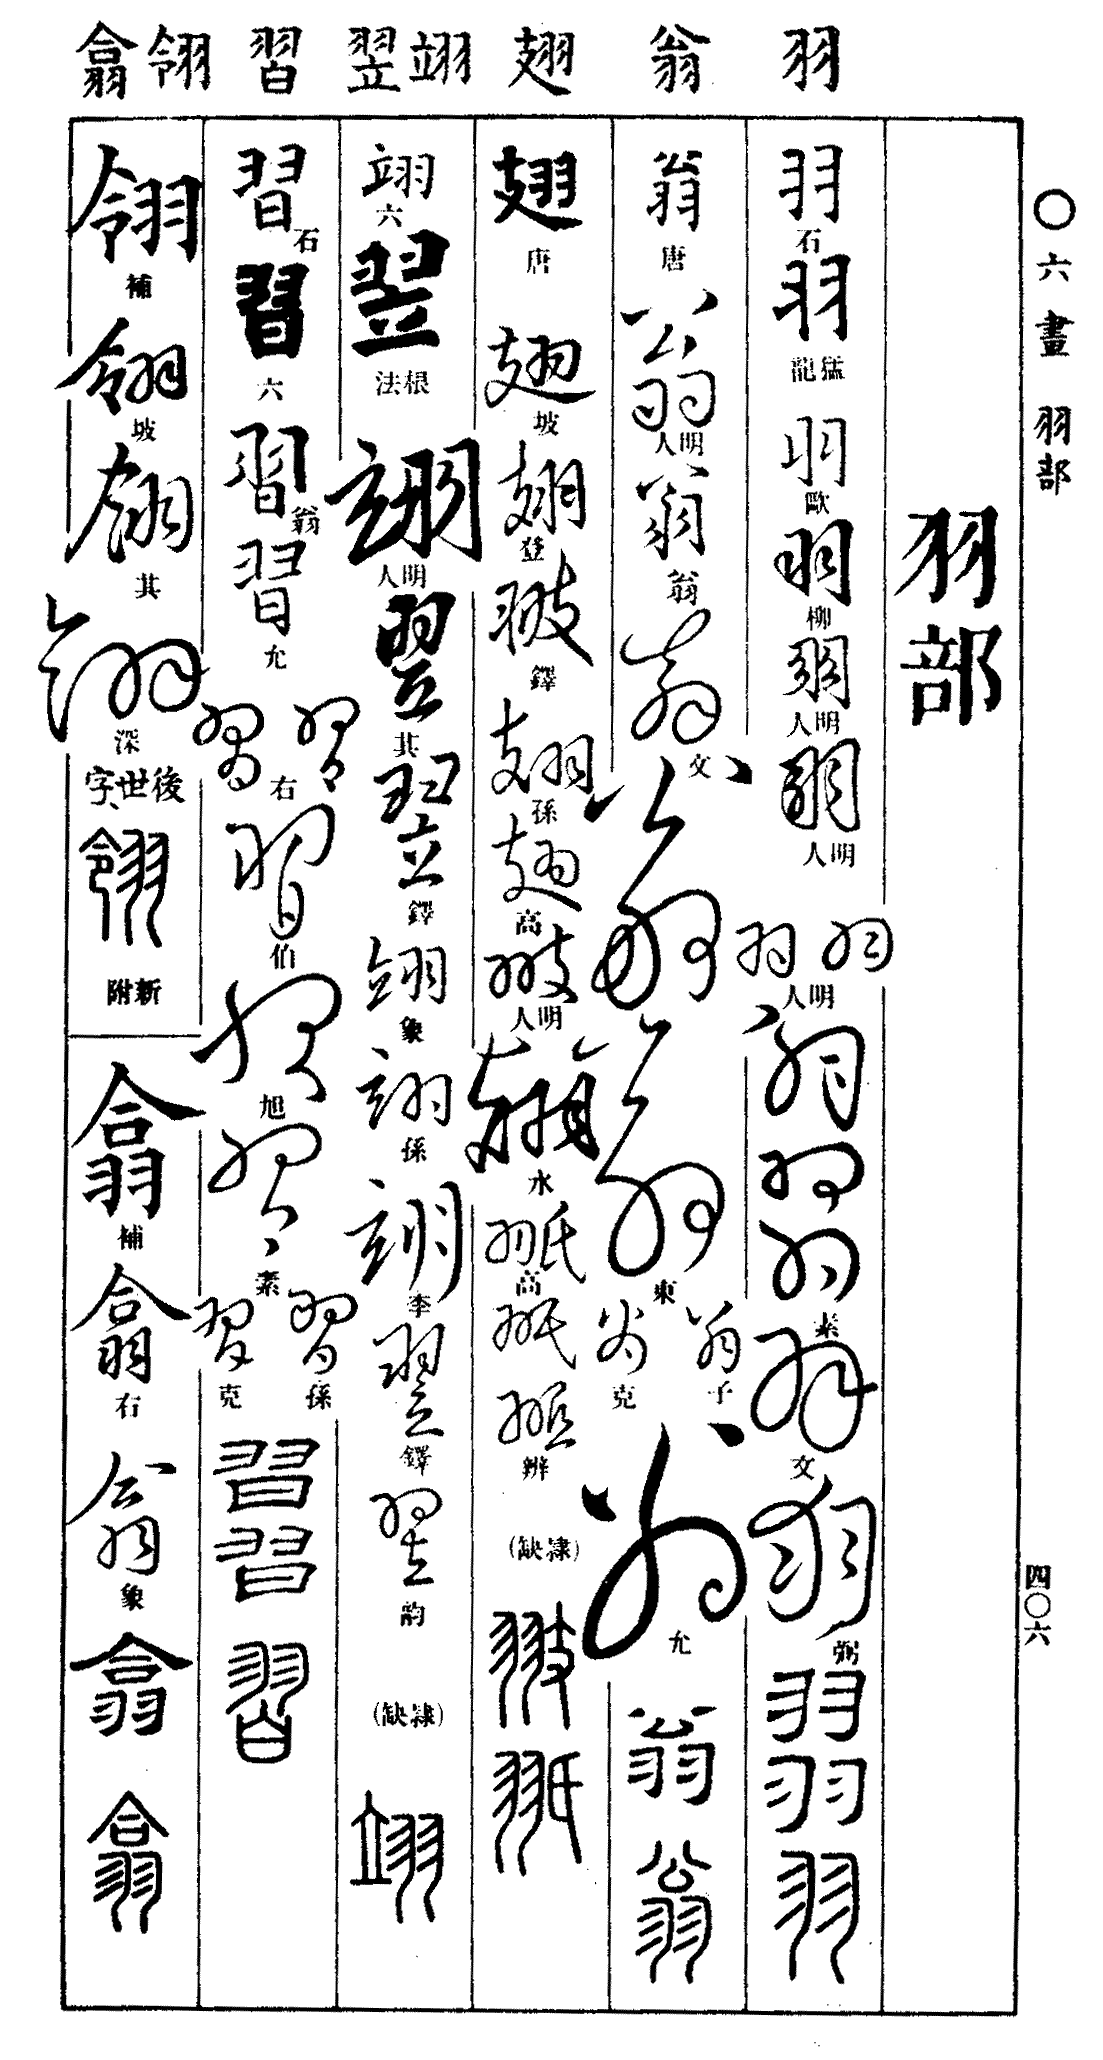 羽 翁 翅 翊 翌 習 翎 翕
○六畫 羽部
四〇六
羽部
羽 石 羽 猛龍 羽 歐 羽 柳 羽 明人 羽 明人 羽 羽 明人 羽 羽 羽 素 羽 文 羽 弼 羽 羽 羽
翁 唐 翁 明人 翁 翁 翁 文 翁 翁 東 翁 子 翁 克 翁 允 翁 翁
翅 唐 翅 坡 翅 登 翄 鐸 翅 孫 翅 高 翄 明人 水 高 辨 (隸缺) 翄
翊 六 翌 根法 翊 明人 翌 其 翌 鐸 翊 象 翊 孫 翊 李 翌 鐸 翌 韵 (隸缺) 翊
習 石 習 六 習 翁 習 允 習 習 右 習 伯 習 旭 習 素 習 孫 習 克 習 習 習
翎 補 翎 坡 翎 其 翎 深 後世字 翎 新附
翕 補 翕 右 翕 象 翕 翕